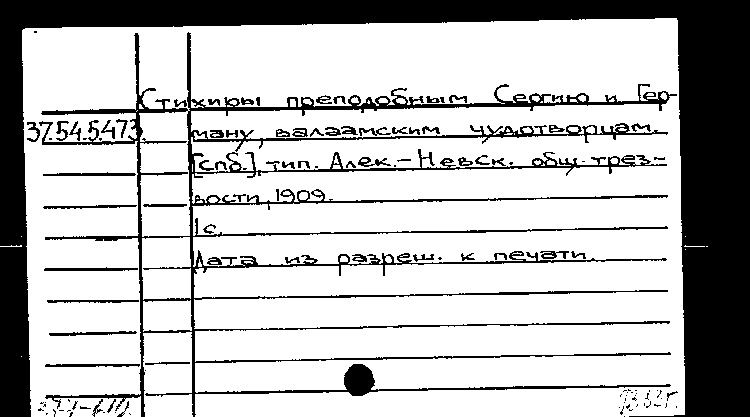 Стихиры преподобным Сергию и Гер-
37.54.5.473. ману, валаамским чудотворцам.
[спб.], тип. Алек.-Невск. общ. трез-
вости, 1909.
1 с.
Дата из разреш. к печати.